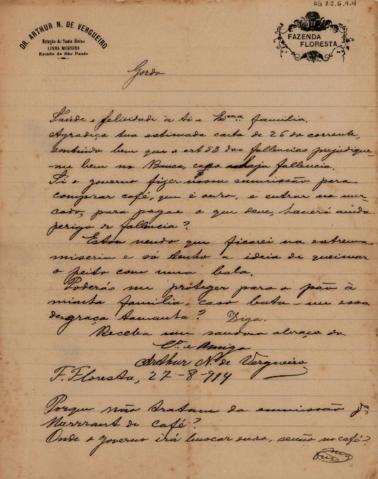 DR. ARTHUR N. DE VERGUEIRO
Estação de Santa Eloisa
LINHA MOGYANA
Estado de São Paulo
FAZENDA
FLORESTA
Gordo
Saúde e felicidade a ti e Exma familia.
Agradeço tua estimada carta de 26 do corrente,
bem que o art 83 das fallencias prejudique-
me bem no caso haja fallencia.
Si o governo fizer nova emissão para
comprar café, que é ouro, e entrar no mer-
cado, para pagar o que deve, haverá ainda
perigo de fallencia?
Estou vendo que ficarei na extrema
miseria e só tenho a ideia de queimar
o peito com uma bala.
Poderás me proteger para o pão á
minha familia, caso tenha essa
desgraça? Diga.
Receba um saudoso abraço do
Cr. e Amigo
Arthur N. de Vergueiro
F. Floresta, 27-8-914
Porque não tratam da emissão
Warrant de café?
Onde o governo irá buscar ouro, senão no café?